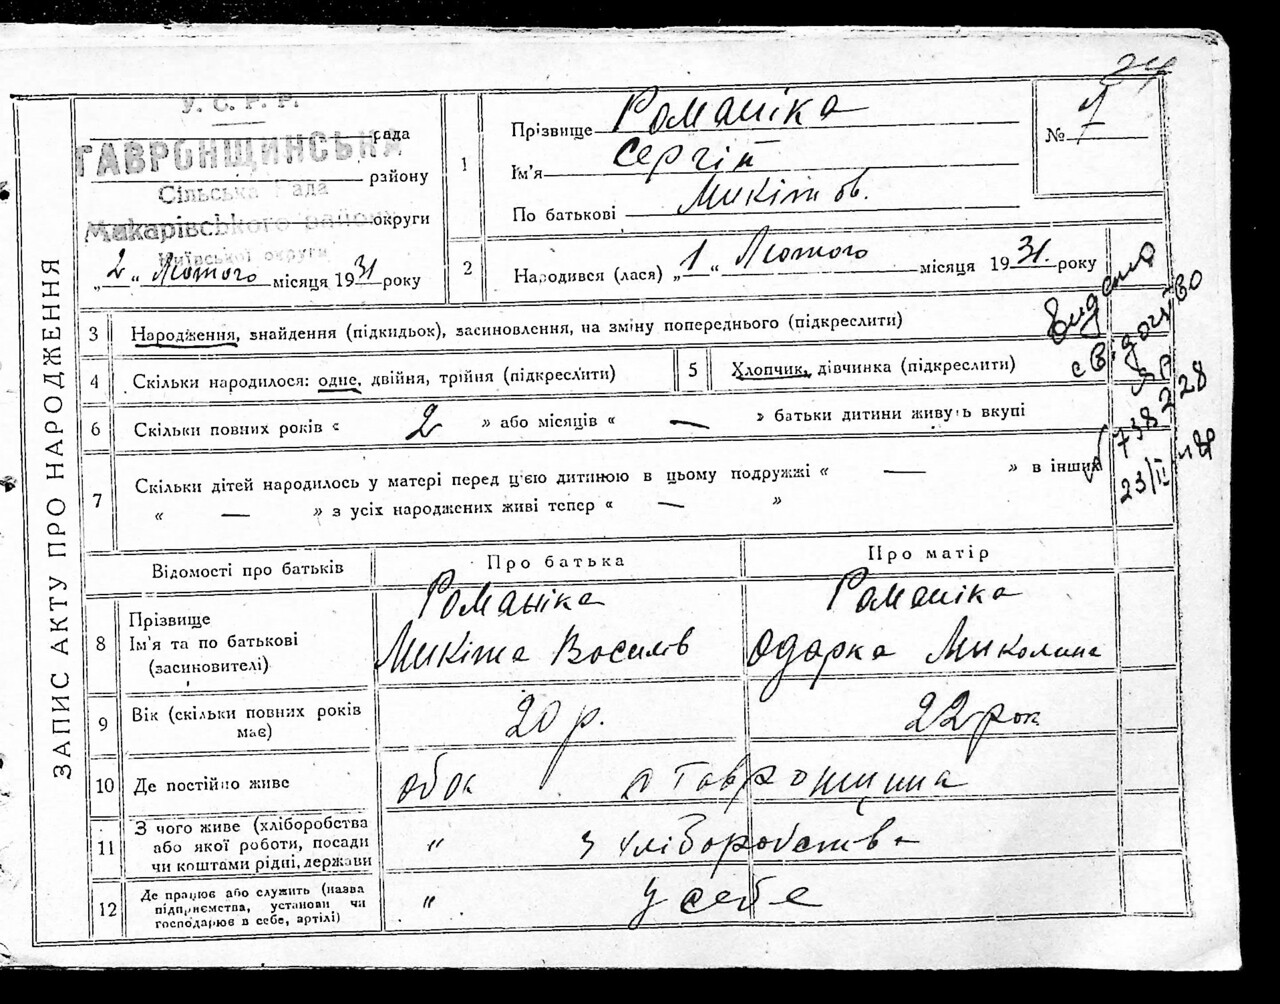 ЗАПИС АКТУ ПРО НАРОДЖЕННЯ
У. С. Р. Р.
рада
ГАВРОНЩИНСЬКА
району
Сільська Рада
округи
Макарівського району
Київської округи
„2 “ Лютого місяця 1931 року
1
Прізвище Романіка
Ім'я Сергій
По батькові Микітов.
№ 7
2
Народився (лася) „1 “ Лютого місяця 1931. року
3
Народження, знайдення (підкидьок), засиновлення, на зміну попереднього (підкреслити)
4
Скільки народилося: одне, двійня, трійня (підкреслити)
5
Хлопчик, дівчинка (підкреслити)
6
Скільки повних років « 2 » або місяців « — » батьки дитини живуть вкупі
7
Скільки дітей народилось у матері перед цією дитиною в цьому подружжі « — » в інших
« — » з усіх народжених живі тепер « — »
Видано
свідоцтво
738228
23/II
Відомості про батьків
Про батька
Про матір
8
Прізвище
Ім'я та по батькові
(засиновителі)
Романіка
Микіта Василів
Романіка
Одарка Миколина
9
Вік (скільки повних років
має)
20 р.
22 рок
10
Де постійно живе
обок с Гавронщина
11
З чого живе (хліборобства
або якої роботи, посади
чи коштами рідні, держави
„ з хліборобства
12
Де працює або служить (назва
підприємства, установи чи
господарює в себе, артілі)
„ у себе